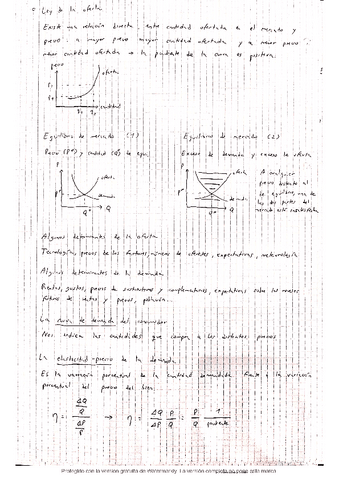 Ley de la oferta
Existe una relación directa entre cantidad ofertada en el mercado y
precio: a mayor precio mayor cantidad ofertada y a menor precio
menor cantidad ofertada → la pendiente de la curva es positiva.
precio
oferta
cantidad
Equilibrio de mercado (1)
Equilibrio de mercado (2)
Precio (P*) y cantidad (Q*) de equi.
Exceso de demanda y exceso de oferta
P
oferta
P*
demanda
Q*
Q
P
oferta
P*
demanda
Q*
Q
A cualquier
precio distinto al
de equilibrio, una de
las dos partes del
mercado está insatisfecha
Algunos determinantes de la oferta
Tecnología, precio de los factores, número de oferentes, expectativas, meteorología
Algunos determinantes de la demanda
Rentas, gustos, precio de sustitutivos y complementarios, expectativas sobre los meses
futuros de rentas y precios, población...
La curva de demanda del consumidor
Nos indica las cantidades que compra a los distintos precios
La elasticidad-precio de la demanda
Es la variación porcentual de la cantidad demandada frente a la variación
porcentual del precio del bien.
η = ΔQ/Q / ΔP/P → η = ΔQ/ΔP · P/Q = P/Q · 1/pendiente